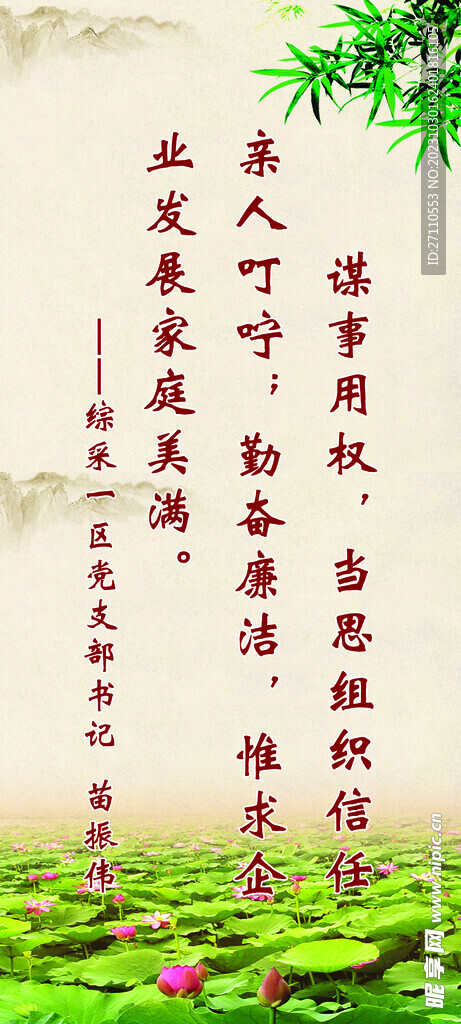 谋事用权，当思组织信任
亲人叮咛；勤奋廉洁，惟求企
业发展家庭美满。
——综采一区党支部书记 苗振伟
ID:27110553 NO:20231030162401816105
昵享网 www.nipic.cn